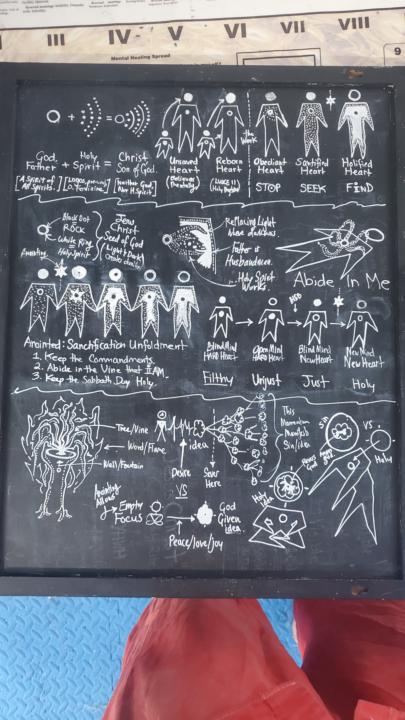 III IV V VI VII VIII
Mental Healing Spread
9
God, Father + Holy Spirit = Christ Son of God.
[A Spirit of All Spirits.]
the Work
Unsaved Heart
Reborn Heart
Obediant Heart
Sanctified Heart
Holified Heart
STOP SEEK FIND
Black Dot
ROCK
White Ring
Holy Spirit
Jesus
Christ
Seed of God
Light + Dark
Anointing
Reflecting Light
Father is
Husbandman.
Holy Spirit
Works.
Abide In Me
Anointed: Sanctification Unfoldment
1. Keep the Commandments
2. Abide in the Vine that I AM.
3. Keep the Sabbath Day Holy
Blind Mind
HARD Heart
Open Mind
HARD Heart
Blind Mind
New Heart
New Mind
New Heart
Filthy Unjust Just Holy
Tree/Vine
Word/Flame
Well/Fountain
idea
Desire
VS
Sever
Here
This
Momentum
Manifest
Sin/idea
Sin
VS
Holy
Holy
idea
Empty
Focus
God
Given
idea
Peace/love/joy